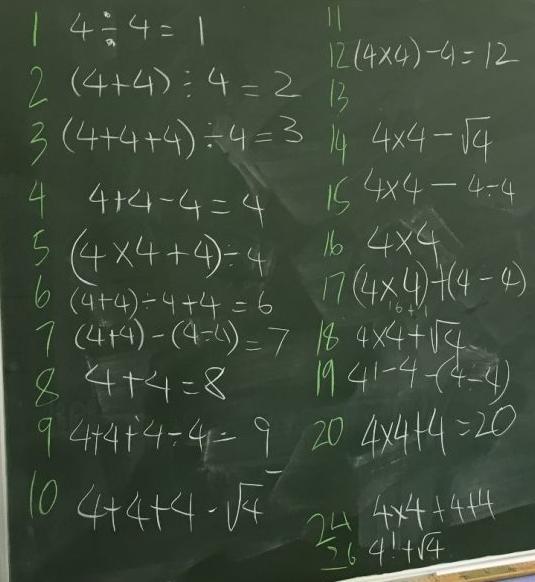 1 4 ÷ 4 = 1
2 (4+4) ÷ 4 = 2
3 (4+4+4) ÷ 4 = 3
4 4+4-4 = 4
5 (4×4+4)÷4
6 (4+4)÷4+4 = 6
7 (4+4)-(4÷4) = 7
8 4+4 = 8
9 4+4+4÷4 = 9
10 4+4+4-√4
11
12 (4×4)-4 = 12
13
14 4×4-√4
15 4×4-4÷4
16 4×4
17 (4×4)+(4÷4)
16+1
18 4×4+√4
19 4!-4-(4÷4)
20 4×4+4 = 20
24 4×4+4+4
26 4!+√4